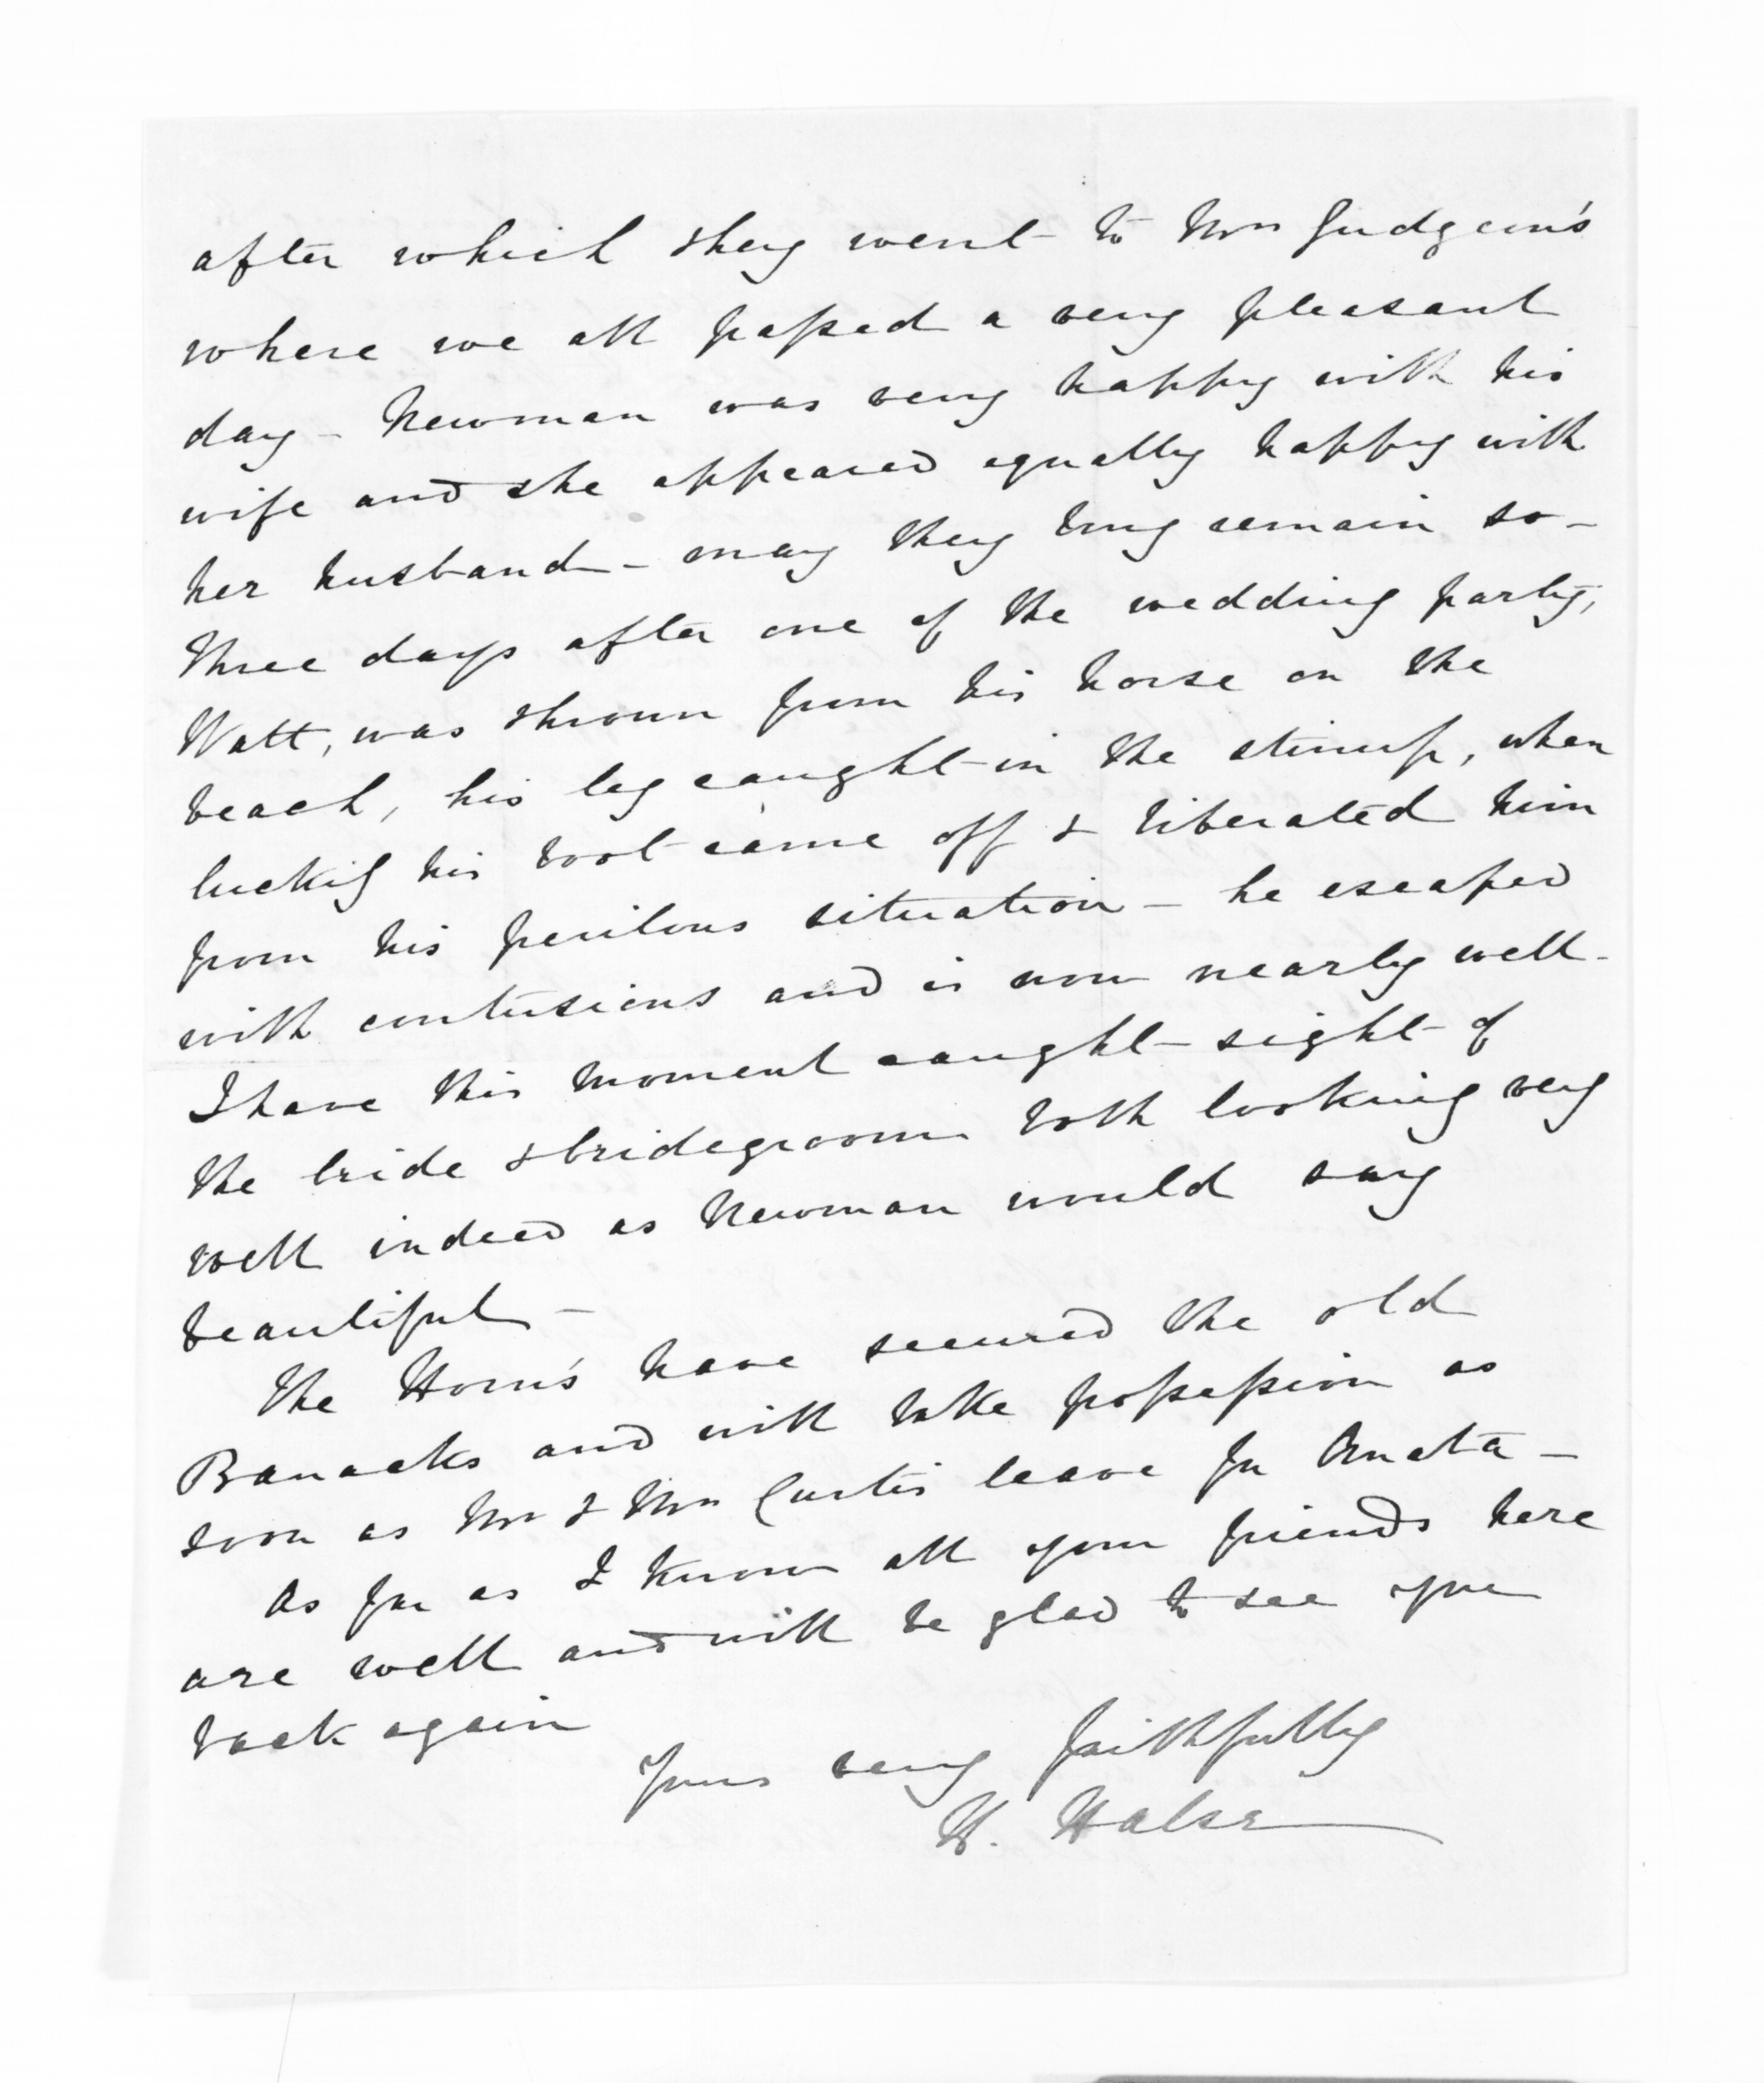 after which they went to Mrs Gudgeon's
where we all passed a very pleasant
day - Newman was very happy with his
wife and she appeared equally happy with
her husband - may they long remain so -
Three days after one of the wedding party,
Watt, was thrown from his horse on the
beach, his leg caught in the stirrup, when
luckily his boot came off & liberated him
from his perilous situation - he escaped
with contusions and is now nearly well -
I have this moment caught sight of
the bride & bridegroom both looking very
well indeed as Newman would say
beautiful -
The Horn's have secured the old
Barracks and will take possession as
soon as Mr & Mrs Curtis leave for Omata -
As far as I know all your friends here
are well and will be glad to see you
back again
Yours very faithfully
H. Halse